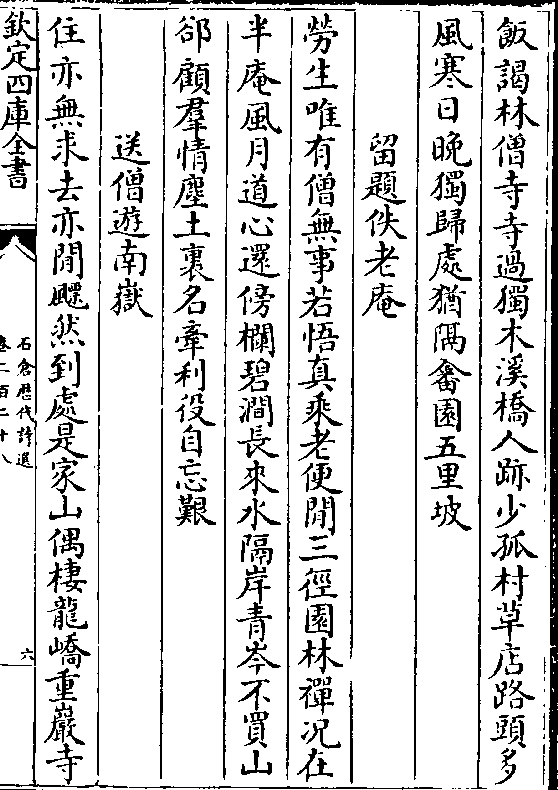 飯謁林僧寺寺過獨木溪橋人跡少孤村草店路頭多
風寒日晚獨歸處猶隔畬園五里坡
留題佚老庵
勞生唯有僧無事若悟真乘老便閒三徑園林禪況在
半庵風月道心還傍欄碧澗長來水隔岸青岑不買山
郤顧羣情塵土裏名牽利役自忘艱
送僧遊南嶽
住亦無求去亦閒飄然到處是家山偶棲龍嶠重巖寺
欽定四庫全書
石倉歷代詩選
卷二百二十八
六